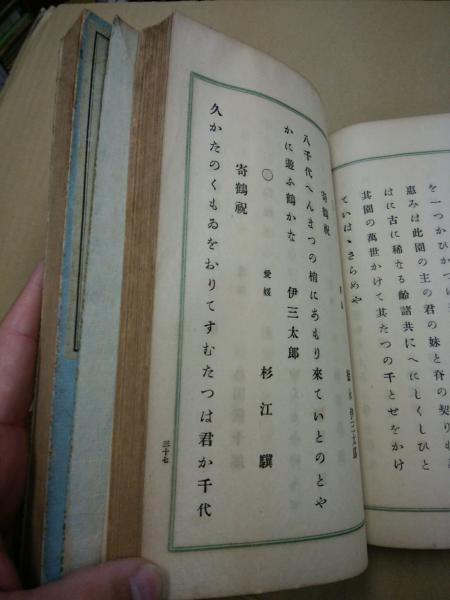 を一つかひかつ
惠みは此園の主の君の妹と脊の契りも
はに古に稀なる齡諸共にへにしくしひと
其園の萬世かけて其たつの千とせをかけ
ていはゝさらめや
伊三太郎
寄鶴祝
八千代へんまつの梢にあもり來ていとのとや
かに遊ふ鶴かな 伊三太郎
〇 愛媛 杉江驥
寄鶴祝
久かたのくもゐをおりてすむたつは君か千代
三十七